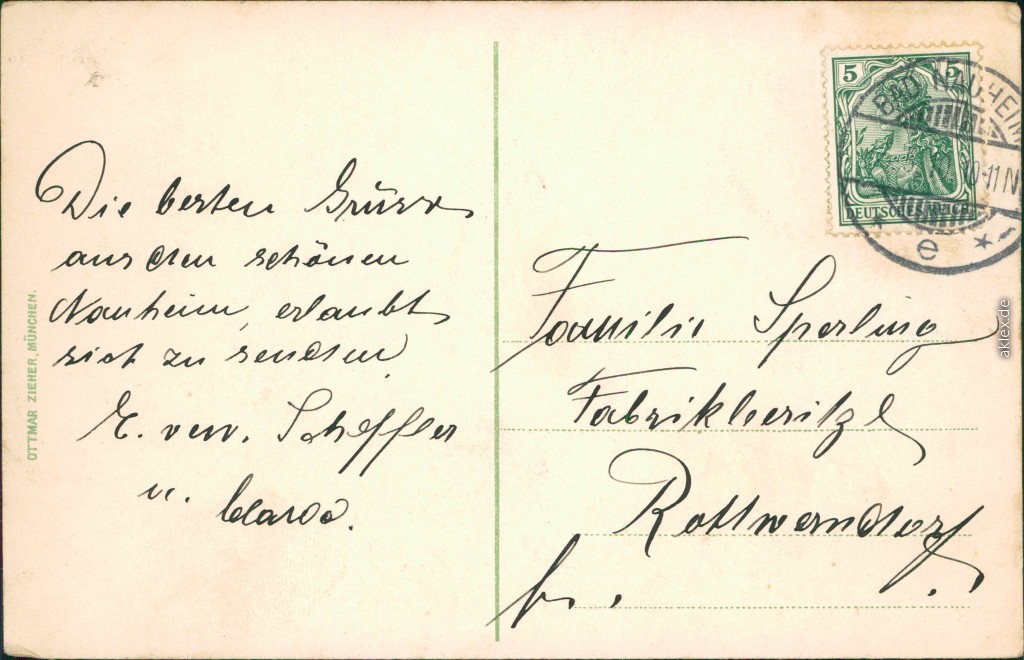 Die besten Grüsse
aus dem schönen
Nauheim, erlaubt
sich zu senden
E. verw. Scheffler
u. Clara.
Familie Sperling
Fabrikbesitzer
Rottwerndorf
b.
OTTMAR ZIEHER, MÜNCHEN.
5 5
DEUTSCHES REICH
BAD NAUHEIM
10-11 N
* e *
aklex.de